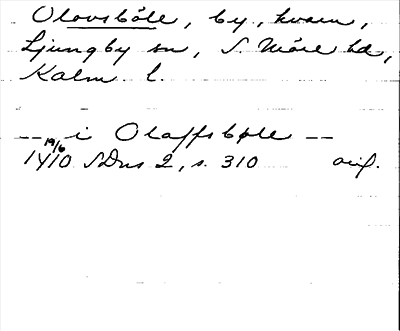 Olovsbåle, by, kvarn,
Ljungby sn, S. Möre hd,
Kalm. l.
-- i Olaffsbole --
19/6
1410 SDns 2, s. 310 orig.